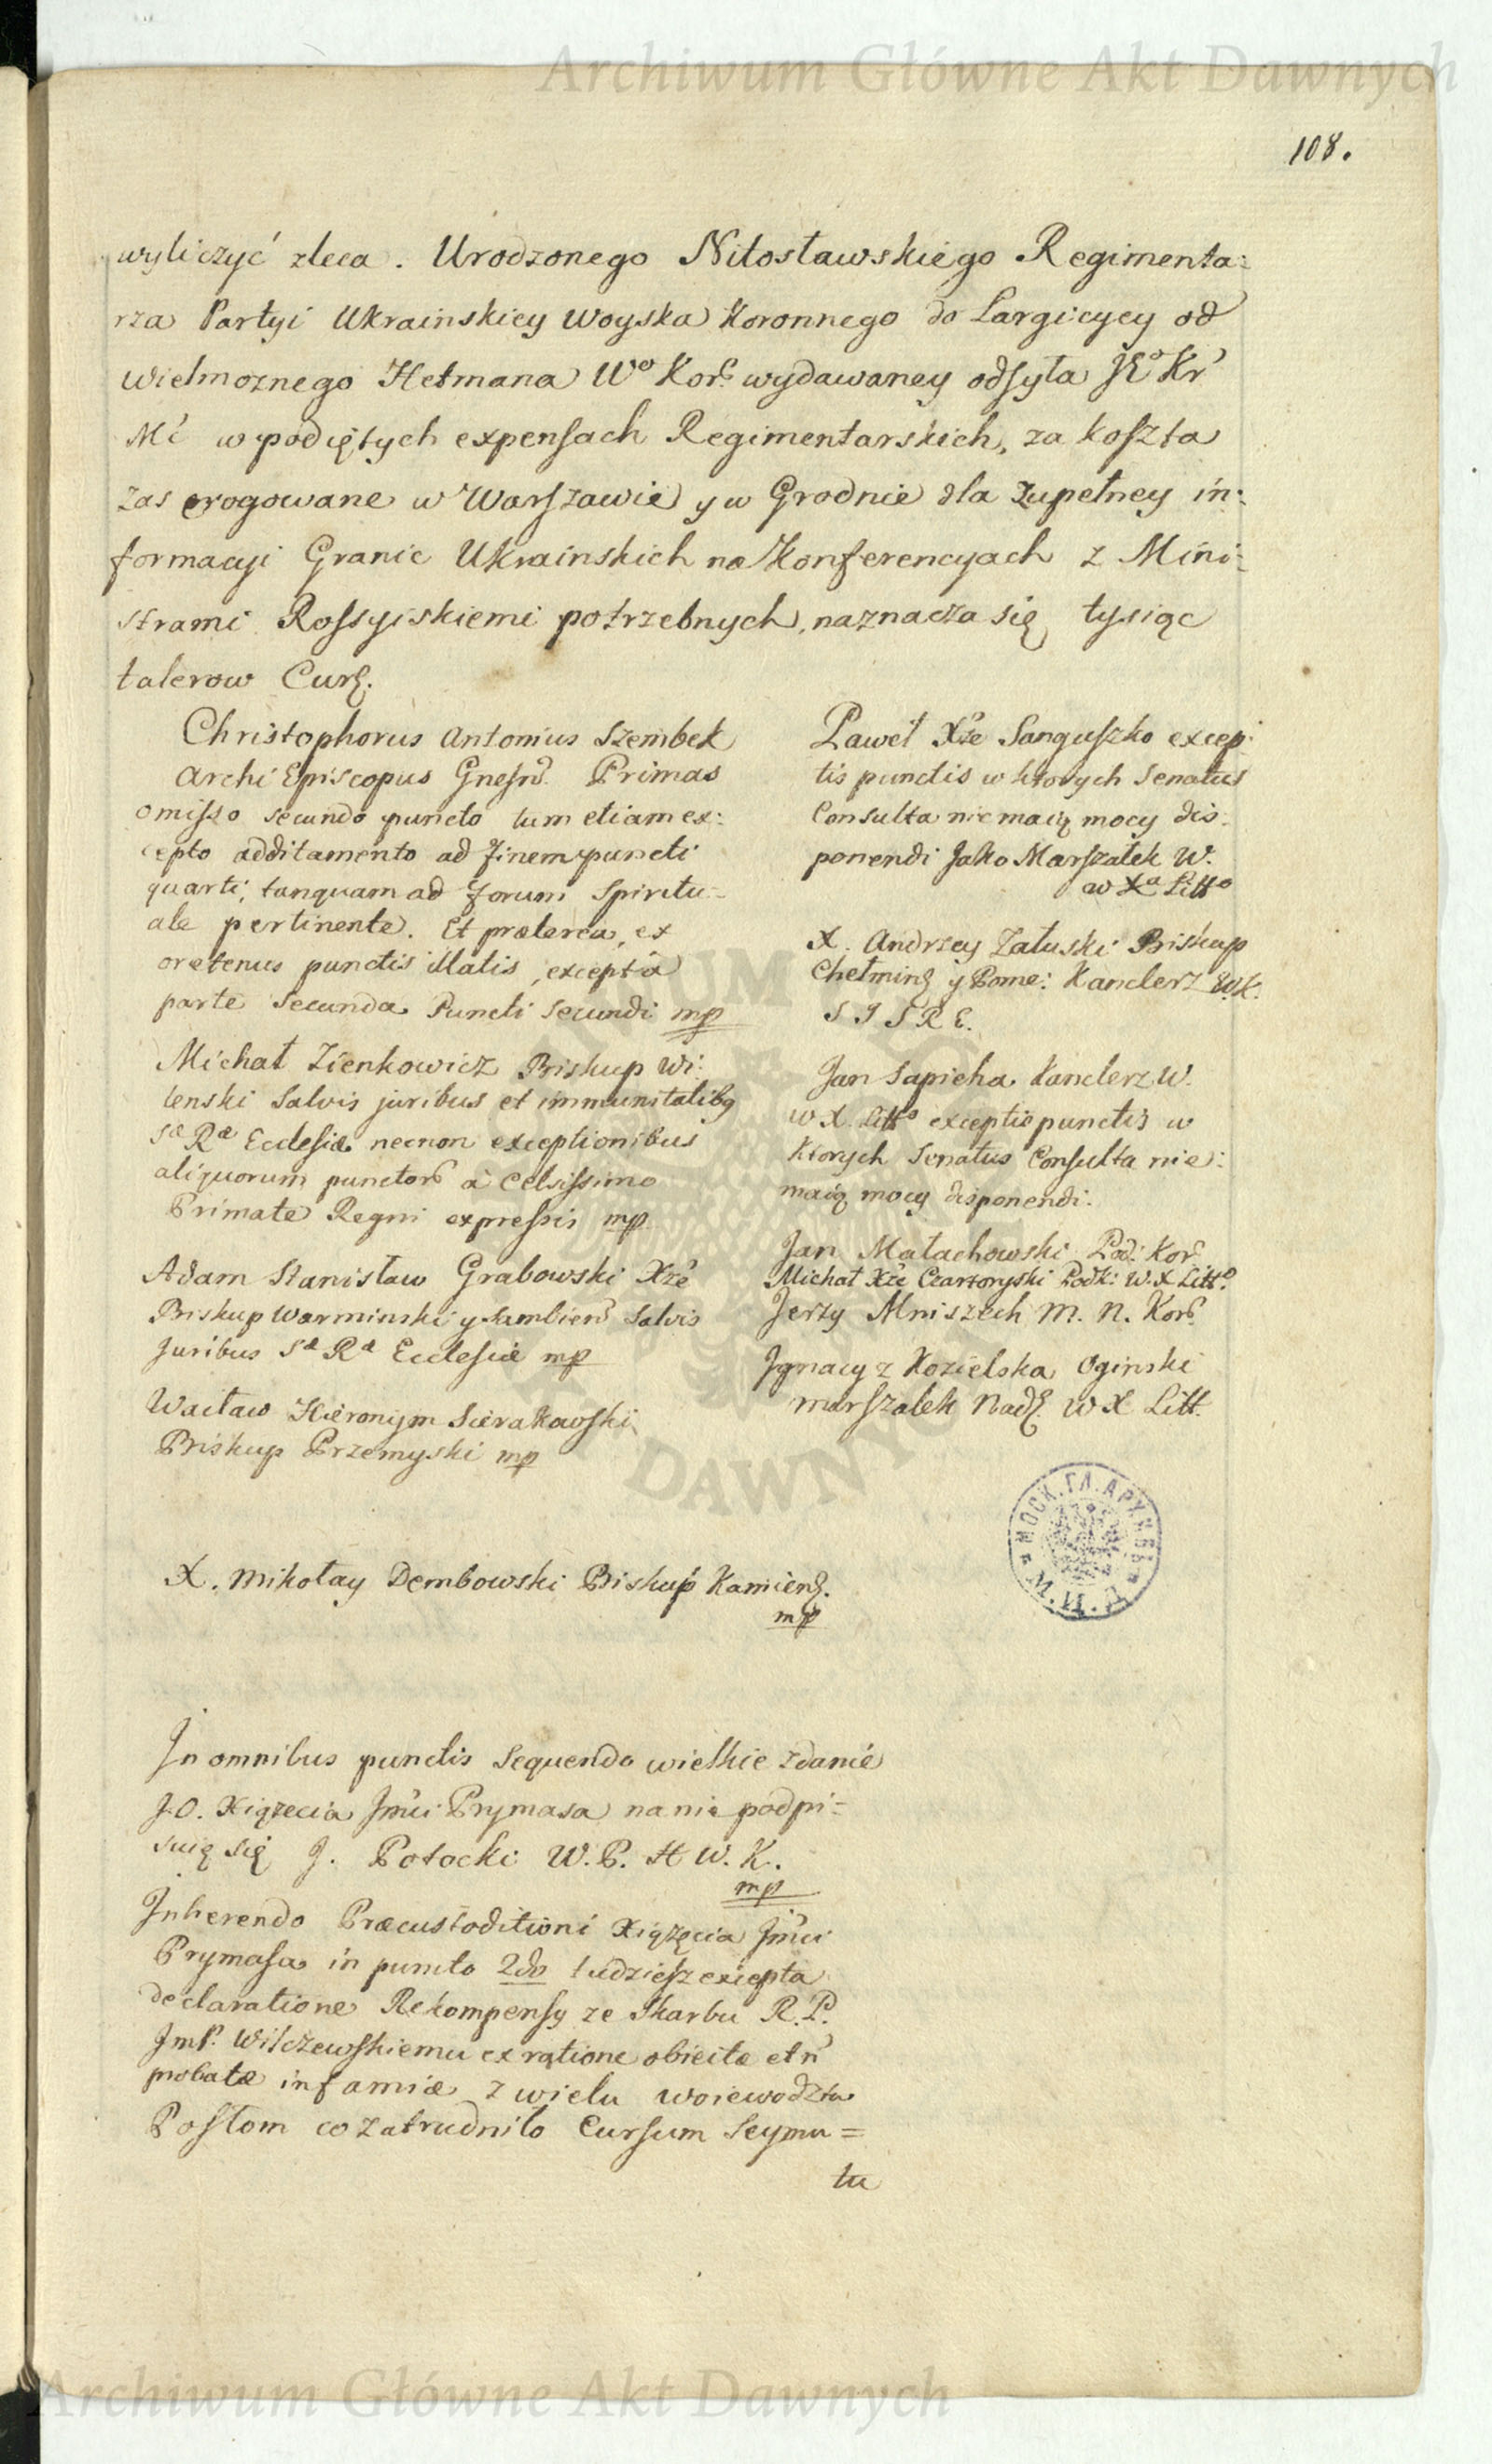 Archiwum Główne Akt Dawnych
108.
wyliczyć zleca. Urodzonego Nitosławskiego Regimenta:
rza Partyi Ukrainskiey Woyska Koronnego do Largicyey od
Wielmoznego Hetmana Wo Kor. wydawaney odsyła JKo Kr
Mć w podiętych expensach Regimentarskich, za koszta
zas erogowane w Warszawie y w Grodnie dla zupełney in:
formacyi Granic Ukrainskich na Konferencyach z Mini:
strami Rossyiskiemi potrzebnych, naznacza się tysiąc
talerow Curr.
Christophorus Antonius Szembek
Archi Episcopus Gnesn. Primas
omisso secundo puncto tum etiam ex:
cepto additamento ad finem puncti
quarti, tanquam ad forum Spiritu-
ale pertinente. Et praeterea, ex
oretenus punctis illatis, exceptâ
parte Secunda Puncti Secundi mp
Michał Zienkowicz Biskup Wi:
lenski Salvis juribus et immunitatibq
Sæ Ræ Ecclesiæ necnon exceptionibus
aliquorum punctorū à Celsissimo
Primate Regni expressis mp
Adam Stanisław Grabowski Xże
Biskup Warminski y Sambień Salvis
Juribus Sæ Ræ Ecclesiæ mp
Wacław Hieronym Sierakowski
Biskup Przemyski mp
X. Mikołay Dembowski Biskup Kamien.
mp
Paweł Xże Sanguszko excep:
tis punctis w ktorych Senatus
Consulta nie maią mocy dis-
ponendi Jako Marszałek W.
w Xa Litto
X. Andrzey Załuski Biskup
Chełmin y Pome: Kanclerz W.K.
S J S R E.
Jan Sapieha Kanclerz W.
W X. Litto exceptis punctis w
ktorych Senatus Consulta nie:
maią mocy disponendi.
Jan Małachowski Pod: Kor.
Michał Xże Czartoryski Podk: W.X Litto.
Jerzy Mniszech M. N. Kor.
Jgnacy z Kozielska Oginski
marszałek Nad. W X Litt.
МОСК. ГЛ. АРХИВЪ
М. И. Д.
Jn omnibus punctis Sequendo wielkie zdanie
J.O. Xiązecia Jmci Prymasa na nie podpi-
suię się J. Potocki W.P. H W. K.
mp
Jnherendo Præcustoditioni Xiążęcia Jmci
Prymasa in puncto 2do tudziesz excepta
declaratione Rekompensy ze Skarbu R.P.
JmP. Wilczewskiemu ex ratione obiectæ et ñ
probatæ infamiæ z wielu woiewodztw
Posłom co zatrudniło Cursum Seymu=
tu
Archiwum Główne Akt Dawnych